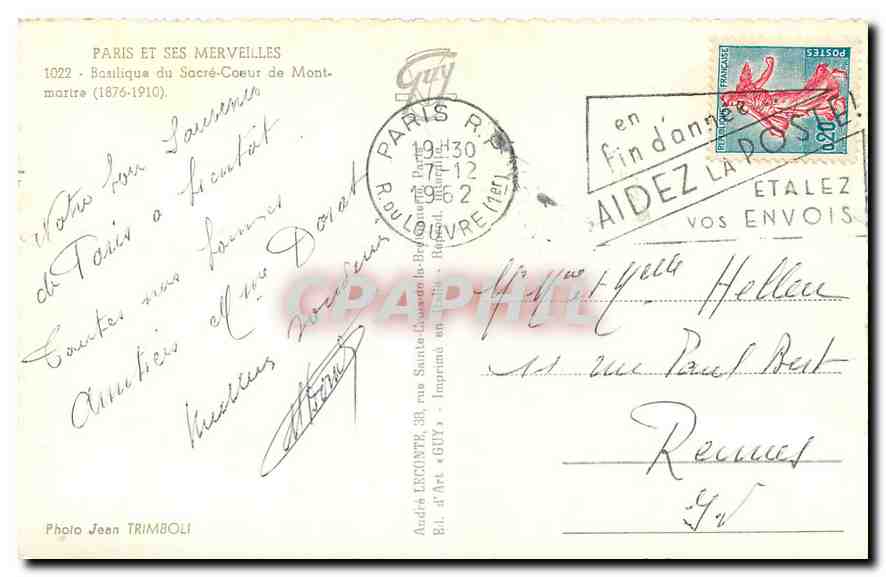 PARIS ET SES MERVEILLES
1022 - Basilique du Sacré-Coeur de Mont-
martre (1876-1910).
Guy
PARIS R.P.
19H30
7-12
1962
R. DU LOUVRE (1er)
en
fin d'année
AIDEZ LA POSTE!
ETALEZ
VOS ENVOIS
REPUBLIQUE FRANÇAISE
POSTES
0,20
Notre bon Souvenir
de Paris a bientot
Toutes nos bonnes
amitiés Mme Dorat
meilleurs
CPAPHIL
Mr Mme et Melle Helleu
11 rue Paul Bert
Rennes
I V
André LECONTE, 38, rue Sainte-Croix-de-la-Bretonnerie Paris
Ed. d'Art «GUY» - Imprimé en Italie - Reprod. Interdite
Photo Jean TRIMBOLI